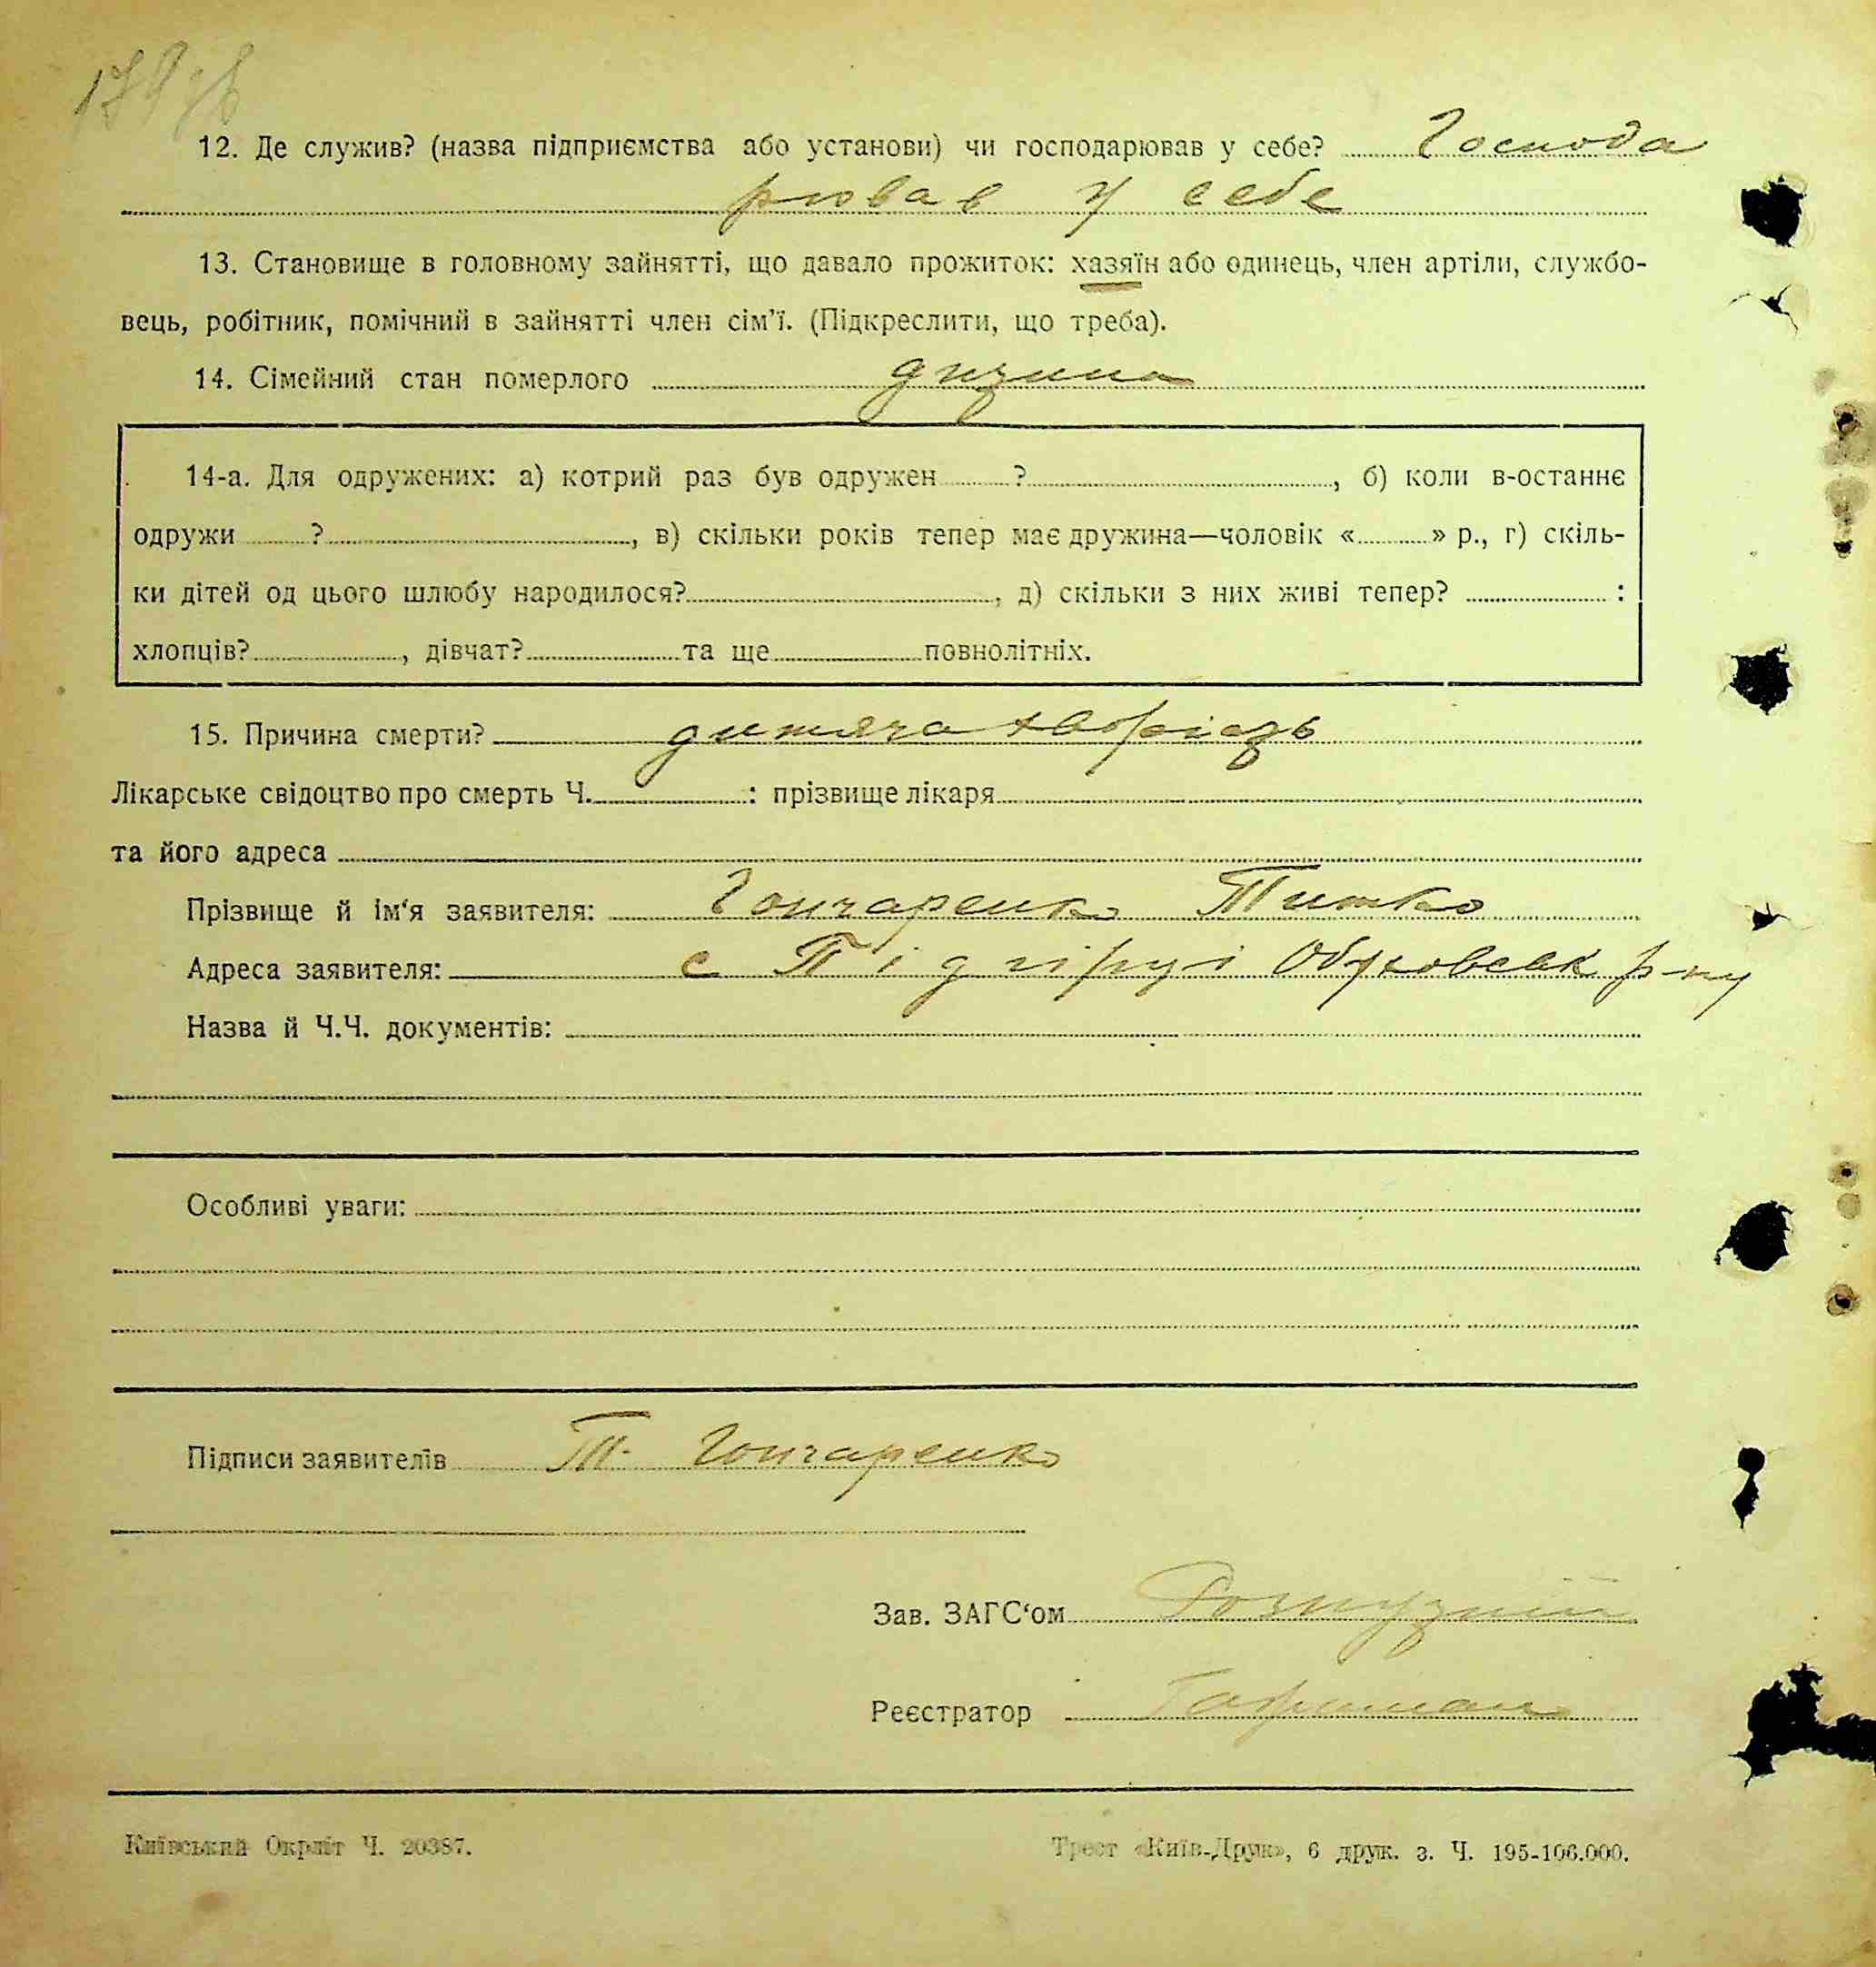 12. Де служив? (назва підприємства або установи) чи господарював у себе? Господа
рював у себе
13. Становище в головному зайнятті, що давало прожиток: хазяїн або одинець, член артіли, службо-
вець, робітник, помічний в зайнятті член сім'ї. (Підкреслити, що треба).
14. Сімейний стан померлого
14-а. Для одружених: а) котрий раз був одружен ? , б) коли в-останнє
одружи ? , в) скільки років тепер має дружина—чоловік « » р., г) скіль-
ки дітей од цього шлюбу народилося? , д) скільки з них живі тепер? :
хлопців? , дівчат? та ще повнолітніх.
15. Причина смерти? дитяча
Лікарське свідоцтво про смерть Ч. : прізвище лікаря
та його адреса
Прізвище й ім'я заявителя: Гончаренко Титко
Адреса заявителя: с Підгірці Обуховськ р-ну
Назва й Ч.Ч. документів:
Особливі уваги:
Підписи заявителів Т. Гончаренко
Зав. ЗАГС'ом
Реєстратор
Київський Окрліт Ч. 20387.
Трест «Київ-Друк», 6 друк. з. Ч. 195-106.000.